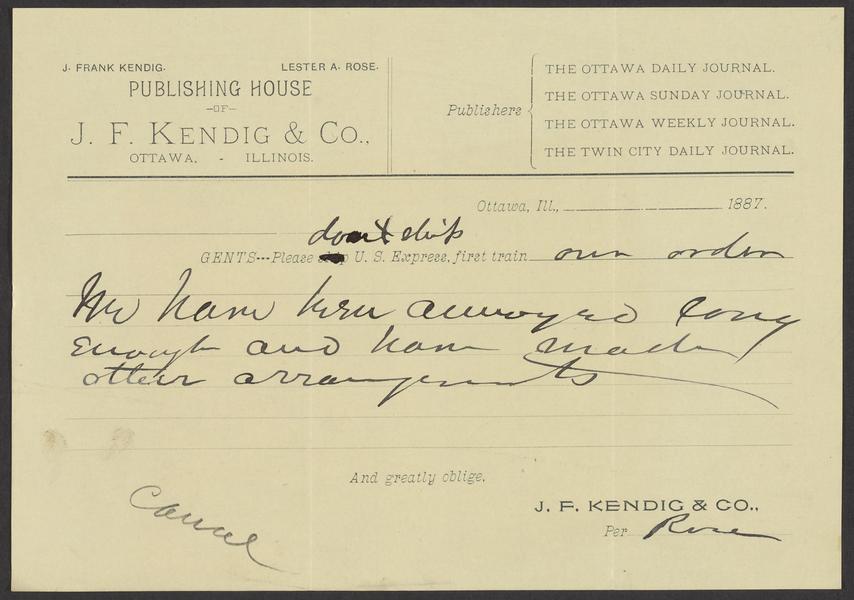 J. FRANK KENDIG. LESTER A. ROSE.
PUBLISHING HOUSE
—OF—
J. F. KENDIG & CO.,
OTTAWA, - ILLINOIS.
Publishers
THE OTTAWA DAILY JOURNAL.
THE OTTAWA SUNDAY JOURNAL.
THE OTTAWA WEEKLY JOURNAL.
THE TWIN CITY DAILY JOURNAL.
Ottawa, Ill., 1887.
dont ship
GENTS---Please ship U. S. Express, first train our order
We have been annoyed long
enough and have made
other arrangements
And greatly oblige,
J. F. KENDIG & CO.,
Per Rose
Cancel